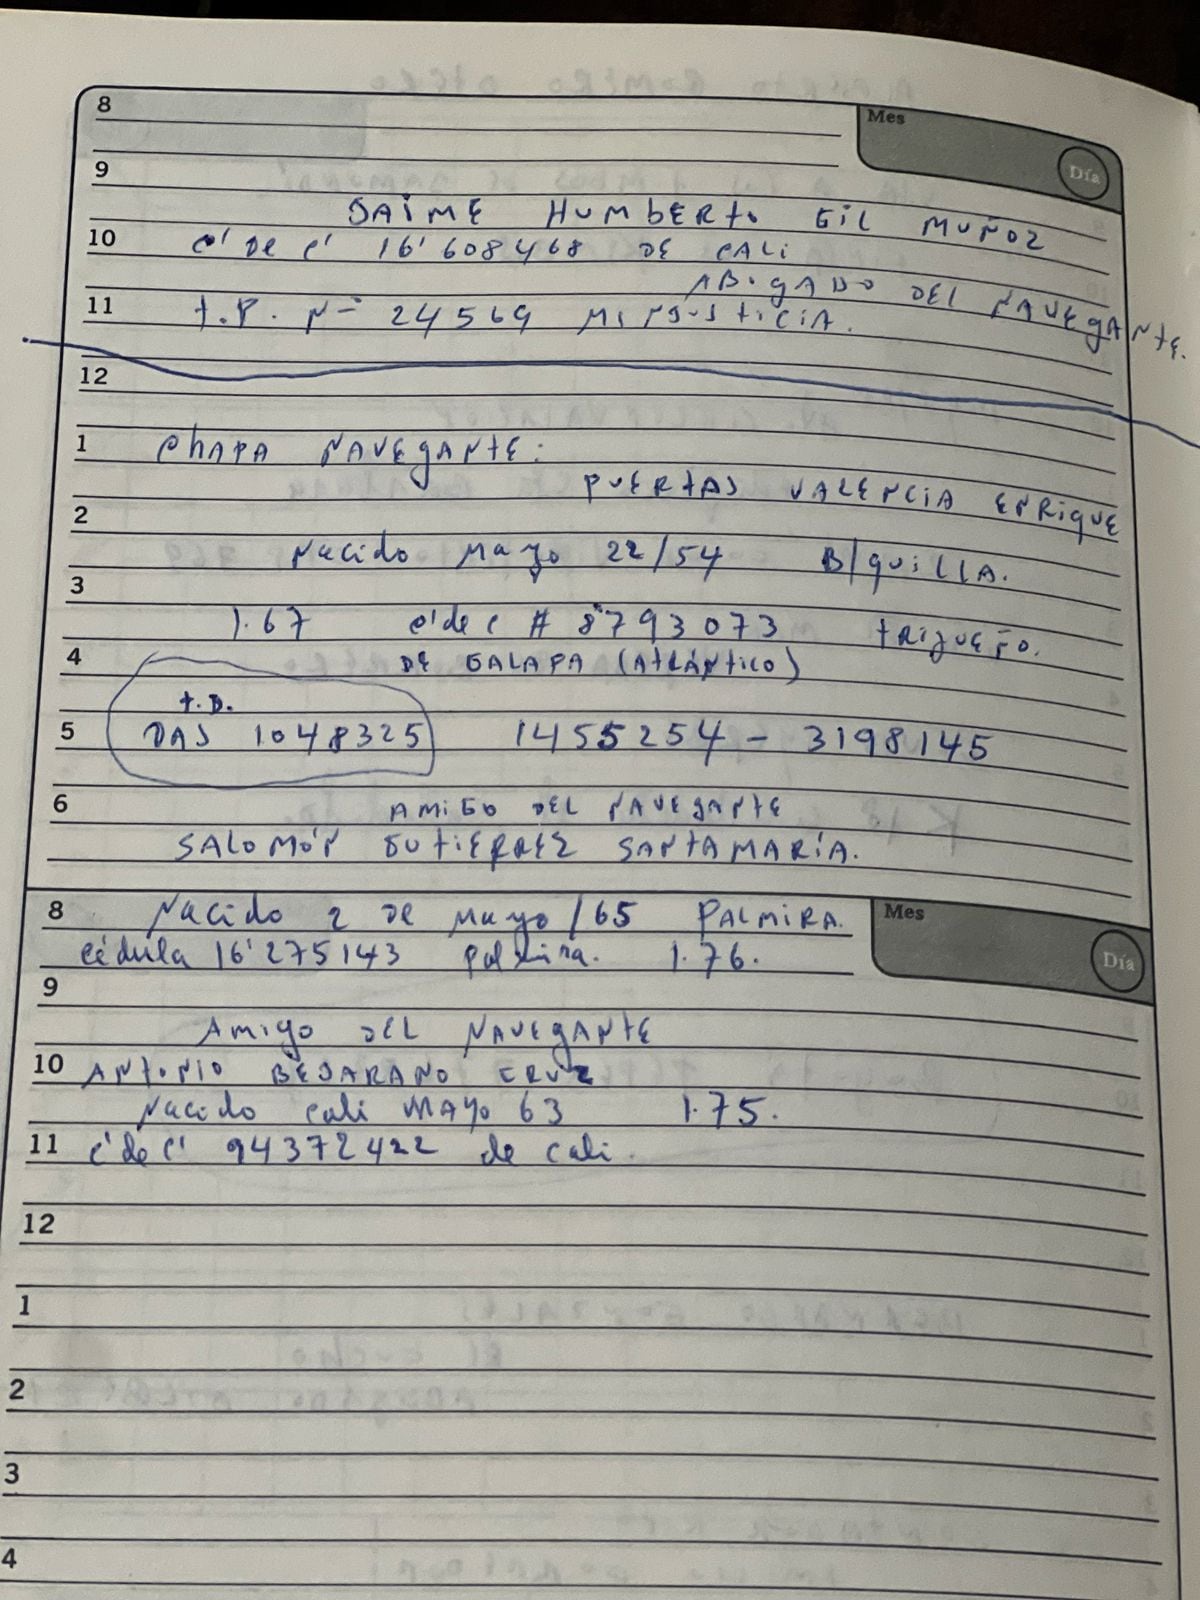 8
Mes
Día
9
JAIME HUMBERTO GIL MUÑOZ
10 c' De c' 16'608468 DE CALI
ABOGADO DEL NAVEGANTE.
11 t.P. N- 24569 MINJUSTICIA.
12
1 ChAPA NAVEGANTE:
PUERTAS VALENCIA ENRIQUE
2
Nacido Mayo 22/54 B/quiLLA.
3
1.67 c'de c # 8'793073 TRigueño.
4 DE GALAPA (AtlÁNtico)
t.D.
5 DAS 1048325 1455254 - 3198145
6 AMIGO DEL NAVEGANTE
SALOMÓN GUTIERREZ SANTAMARÍA.
8 Nacido 2 DE Mayo/65 PALMIRA.
Mes
Día
cédula 16'275143 palmira. 1.76.
9
Amigo DEL NAVEGANTE
10 ANtONIO BEJARANO CRUZ
Nacido cali MAYO 63 1.75.
11 c'de c' 94372422 de cali.
12
1
2
3
4